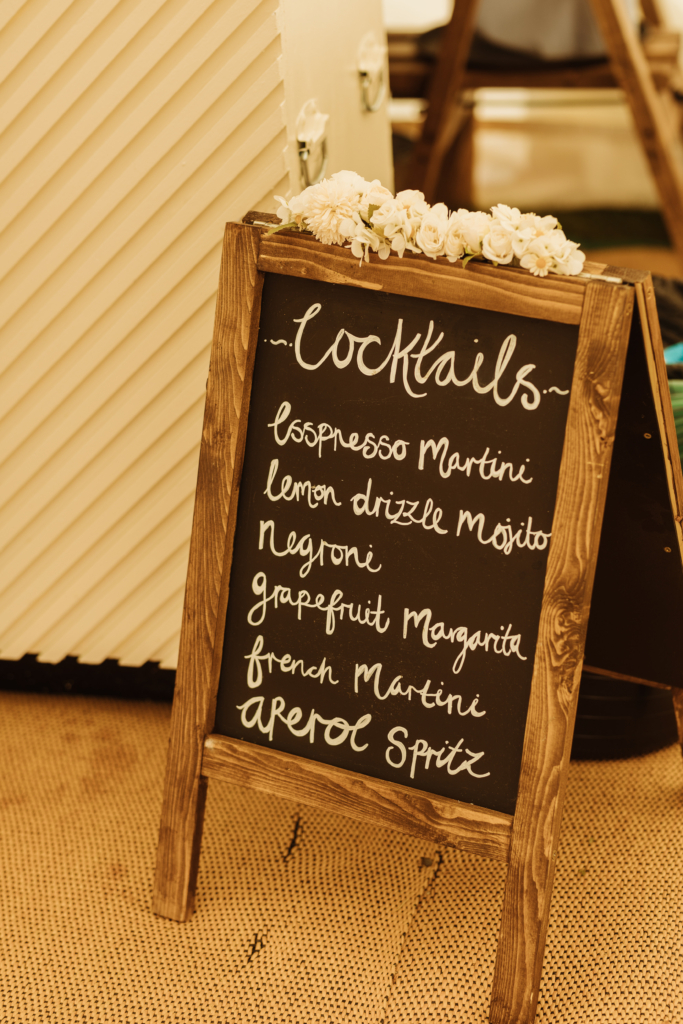 ~Cocktails~
Esspresso Martini
lemon drizzle Mojito
Negroni
grapefruit Margarita
french Martini
aperol Spritz